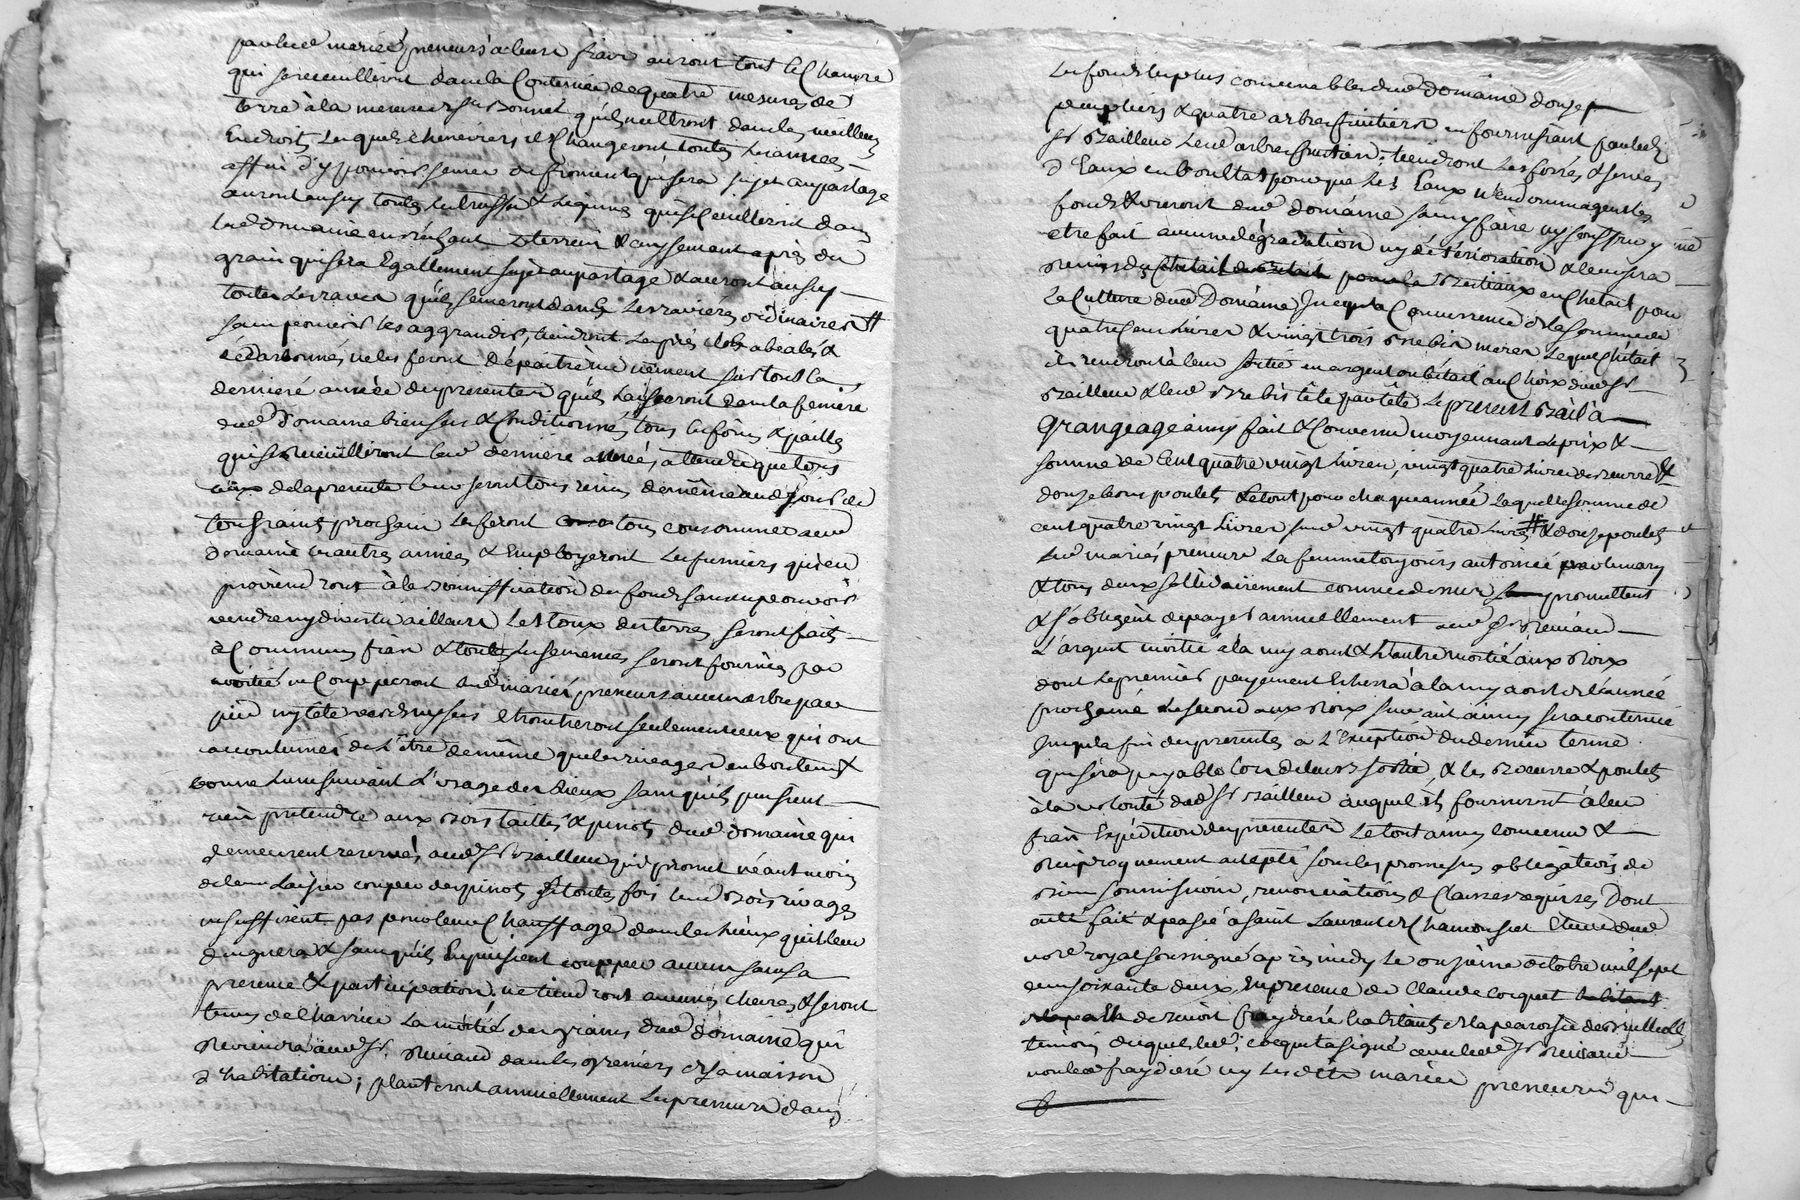 par led mariés preneurs à leurs frais auront tout le Chanvre
qui se recueillira dans la Contenue de quatre mesures de
terre à la mesure de St Bonnet qu'ils mettront dans les meilleurs
Endroits, Lesquels cheneviers ils Changeront toutes Les années
affin d'y pouvoir semer du froment qui sera sujet au partage
auront aussy toutes les truffes & Legumes qui se Cueilliront dans
led domaine en le terrein & aussy
grain qui sera Egallement sujet au partage & auront aussy
toutes Les raves qu'ils semeront dans Les ravières ordinaires #
sans pouvoir les aggrandir, tiendront Les prés clos abealés &
ne les feront Dépaitre surtout la
derniere année des presentes qu'ils Laisseront dans la feniere
dud Domaine bien secs & Conditionnés tous les foins & pailles
qui se recueilliront lad derniere année, attendu que tous
ceux de la presente leur seront tous remis de même aud jour de
toussaint prochain Les feront tous consommer aud
domaine les autres années & Employeront Les fumiers qui en
proviendront à la bonnification des fonds sans en pouvoir
vendre ny divertir ailleurs Les toux des terres seront faits
à Communs frais & toutes Les semences seront fournies par
moitié ne Coupperont led mariés preneurs aucun arbre par
pied ny tête verds ny secs Etroncheront seulement ceux qui ont
accoutumés de L'être de même que les rivages en bon tems &
bonne Lune suivant L'usage des Lieux sans qu'ils puissent
rien pretendre aux bois taillis & pinots dud domaine qui
demeurent reservés aud Sr Bailleur qui promet néantmoins
de leur Laisser couper des pinots si toutes fois led bois rivages
ne suffisent pas pour leur Chauffage dans les Lieux qu'il leur
designera & sans qu'ils En puissent coupper aucun sans sa
presence & participation. ne tiendront aucunes chevres & seront
tenus de Charrier La moitié des grains dud domaine qui
reviendra aud Sr. Renaud dans les greniers de sa maison
d'habitation; planteront annuellement Les preneurs dans
Les fonds les plus convenables dud Domaine douze
peupliers & quatre arbres fruitiers en fournissant par led
Sr Bailleur Lesd arbres fruitiers; tiendront Les fossés & serves
d'Eaux en bon Etat pour que Les Eaux n'endommagent les
fonds & useront dud domaine sans y faire ny souffrir y
etre fait aucune dégradation ny déterioration & leur sera
remis Bestiaux en Chetail pour
La Culture dud Domaine Jusqu'a la Concurrence de la somme de
quatre cens Livres & vingt trois brebis meres Lequel Chetail
ils rendront à leur sortie en argent ou bétail au Choix dud Sr
Bailleur & lesd Brebis tête par tête Le present Bail à
Grangeage ainsy fait & Convenu moyennant Le prix &
somme de Cent quatre vingt Livres, vingt quatre Livres de beurre &
douze bons poulets Le tout pour chaque année Laquelle somme de
cent quatre vingt Livres lesd vingt quatre livres # & douze poulets
Led mariés preneurs La femme toujours autorisée par son mary
& tous deux sollidairement comme dessus promettent
& s'obligent de payer annuellement aud Sr Renaud
L'argent moitié à la my aout & L'autre moitié aux Roix
dont Le premier payement Echerra à la my aout de L'année
prochaine Le second aux Roix suivant ainsy sera continué
Jusqu'a fin des presentes a L'Exception du dernier terme
qui sera payable lors de leur sortie, & les Beurre & poulets
à la volonté dud Sr Bailleur auquel ils fourniront à leur
frais Expédition des presentes Le tout ainsy convenu &
reciproquement accepté sous les promesses obligations de
biens soumissions, renonciations & Clauses requises Dont
acte fait & passé à saint Laurent de Chamousset Etude dud
nore royal soussigné après midy Le onzieme octobre mil sept
cens soixante deux, En presence de Claude Coquet
de Benoit fraydiere habitants de la paroisse de Brullioles
témoins desquels led; Coquet a signé avec led Sr Renaud
non led fraydiere ny Lesdits mariés preneurs qui